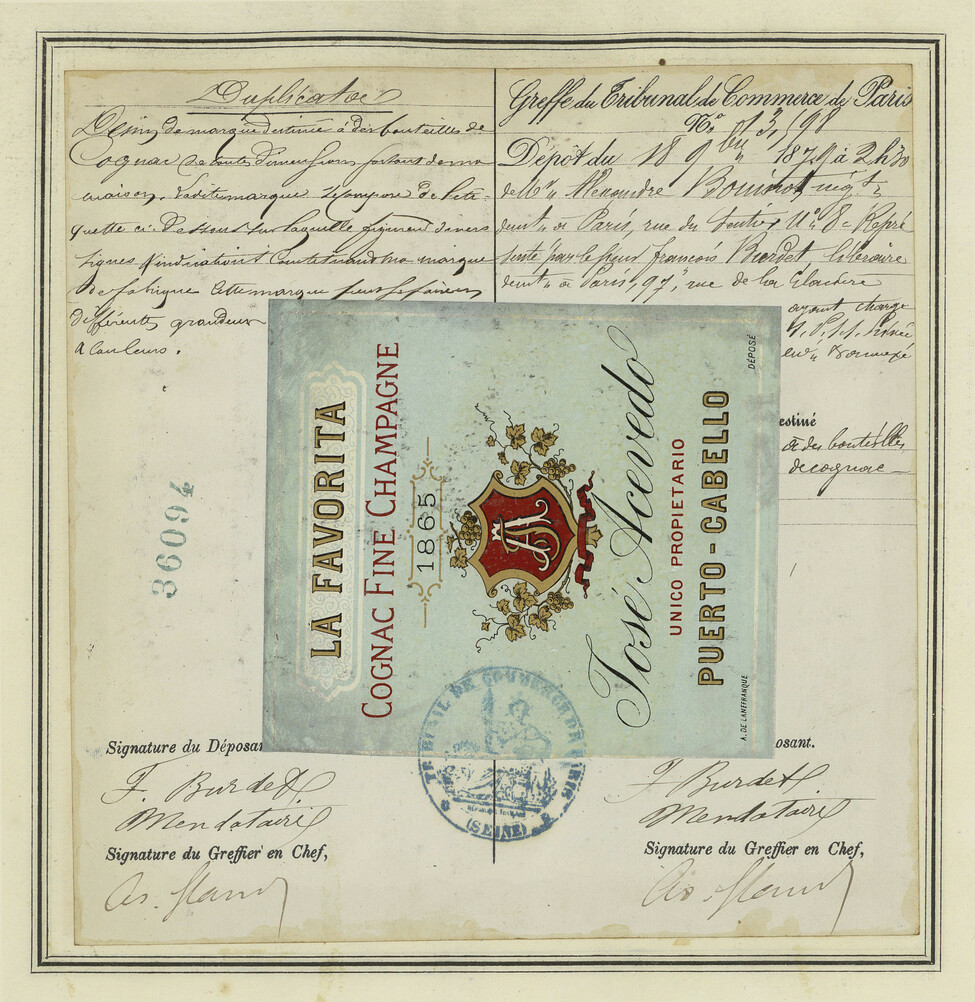 Duplicata
Dessin de marque destinée à des bouteilles de
Cognac de toutes dimensions sortant de ma
maison. Ladite marque se compose de l'éti-
quette ci-dessous sur laquelle figurent divers
signes d'indications constituant ma marque
de fabrique. Cette marque peut se faire en
différentes grandeurs
& couleurs.
36094
Greffe du Tribunal de Commerce de Paris
N° 13,198
Dépôt du 18 9bre 1879 à 2h30
de Mr Alexandre négt
demt à Paris, rue du Sentier N° 8 Repré
senté par le sieur françois Burdet, libraire
demt à Paris, 97, rue de la Glacière
ayant charge
estiné
à des bouteilles
de cognac
LA FAVORITA
COGNAC FINE CHAMPAGNE
1865
JA
José Acevedo
UNICO PROPIETARIO
PUERTO-CABELLO
DÉPOSÉ
A. DE LANEFRANQUE
TRIBUNAL DE COMMERCE DE PARIS
(SEINE)
Signature du Déposan
F. Burdet
Mendataire
Signature du Greffier en Chef,
posant.
F Burdet
Mendataire
Signature du Greffier en Chef,